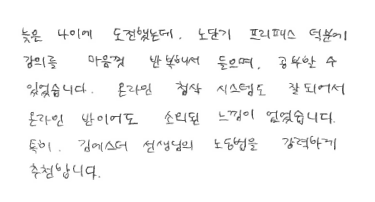 늦은 나이에 도전했는데, 노단기 프리패스 덕분에
강의를 마음껏 반복해서 들으며, 공부할 수
있었습니다. 온라인 첨삭 시스템도 잘되어서
온라인 반이어도 소외된 느낌이 없었습니다.
특히, 김에스더 선생님의 노동법을 강력하게
추천합니다.